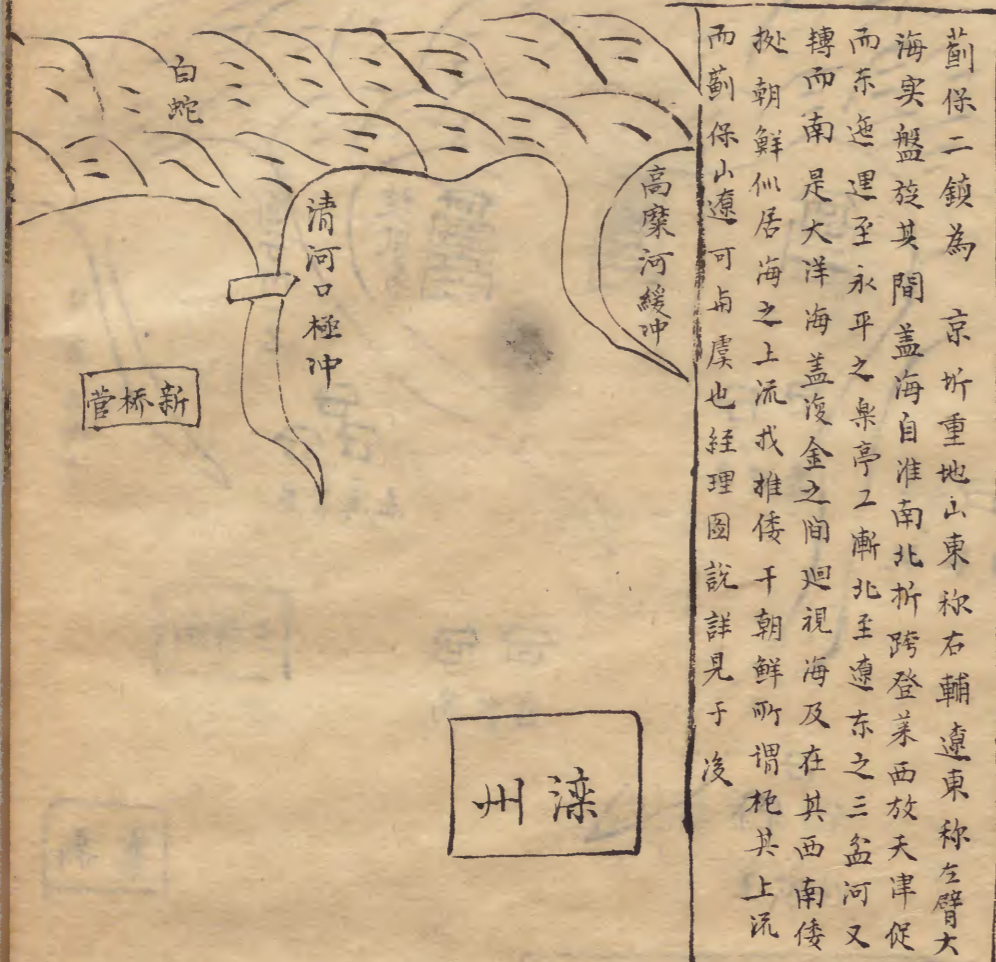 薊保二鎮為　京圻重地山東称右輔遼東称左臂大
海实盤旋其間盖海自淮南北折跨登萊西放天津促
而东迤𨓦至永平之楽亭工漸北至遼东之三盆河又
轉而南是大洋海盖復金之间廻視海及在其西南倭
𢴃朝鮮似居海之上流我推倭于朝鮮所谓扼其上流
而薊保山遼可毋虞也经理图説詳見于後
高糜河緩冲
清河口極冲
白蛇
新桥营
滦州